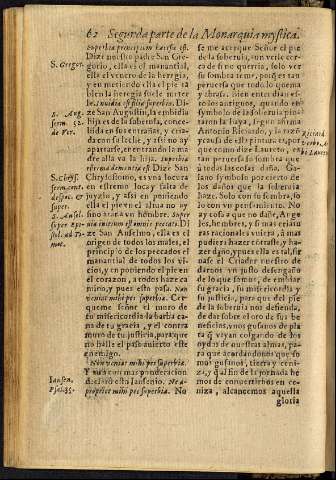 62 Segunda parte de la Monarquia mystica.
superbia principium hæresis est.
Dize nuestro padre San Gre-
gorio, ella es el manantial,
ella el venero de la heregia,
y en metiendo ella el pie
bien la heregia suele meter
Inuidia est filia superbiæ. Di-
ze San Augustin, la embidia
hija es de la soberuia, conce-
bida en sus entrañas, y cria-
da con su leche, y assi no ay
apartarse, entrando la ma
dre alla va la hija. Superbia
extrema dementia est. Dize San
Chrysostomo, es vna locura
en estremo loca y falta de
juyzio, y assi en poniendo
ella el pie en el alma no ay
sino atarà vn hombre. Super
bia initium est omnis peccati. Di
ze San Anselmo, ella es el
origen de todos los males, el
principio de los pecados el
manantial de todos los vi-
cios, y en poniendo el pie en
el coraçon, a todos haze ca
mino, y pues esta passa. Non
veniat mihi pes superbiæ. Cer-
queme señor el muro de
su misericordia la barba ca-
na de tu gracia, y el contra
muro de tu justicia, para que
no halle el passo abierto este
enemigo.
Non veniat mihi pes superbiæ.
Y mas con mas ponderacion
declarò esta Iansenio. Ne ap-
propiet mihi pes superbiæ. No
se me acerque Señor el pie
de la soberuia, ni verle cerca
de si no querria, solo ver
su sombra teme, porque es tan
peruersa que todo lo quema
y abrasa. Bien entendian es-
to los antiguos, quando en
symbolo de la soberuia pinta-
uan la higuera, assi lo firma
Antonio Ricardo, y la razõ
y causa de esta pintura es, por
que como dize Laureto, es
tan peruersa su sombra que
à todas cosas haze daño. Ga-
lano symbolo por cierto de
los daños que la soberuia
haze. Solo con su sombra, so
lo con vn pensamiento. No
ay cosa que no dañe, Ange
les, hombres, y si mas criatu
ras racionales vuiera, à mas
pudiera hazer tiro este, y ha-
zer daño, y pues ella es tal, sir
uase el Criador nuestro de
darnos vn justo desengaño
de lo que somos, de embiar
su gracia, su misericordia y
su justicia, para que del pie
de la soberuia nos defienda,
de dar sobre el oro de sus be
neficios, vnos gusanos de pla
ta que vayan colgando de los
oydos de nuestras almas, pa-
ra que acordandonos que so
mos gusanos, tierra y ceni-
za, y que al fin de la jornada he
mos de conuertirnos en ce-
niza, alcancemos aquella
gloria
S. Gregor.
S. Aug.
serm. 52.
de Ver.
S. Chrys.
serm. cont.
desper. &
super.
S. Ansel.
super Epi-
stol. ad Ro-
man.
Iansen.
Psal. 35.